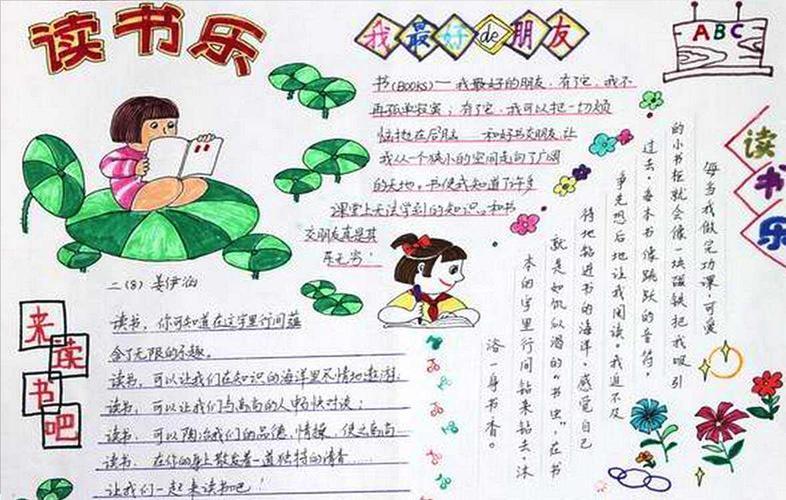 读书乐
我最好de朋友
ABC
书(BOOKS)一我最好的朋友,有了它,我不
再孤单寂寞;有了它,我可以把一切烦
恼抛在后脑 和好书交朋友,让
我从一个狭小的空间走向了广阔
的天地。书使我知道了许多
课堂上无法学到的知识。和书
交朋友真是其
乐无穷!
每当我做完功课,可爱
的小书柜就会像一块磁铁把我吸引
过去,每本书像跳跃的音符,
争先恐后地让我阅读。我迫不及
待地钻进书的海洋,感觉自己
就是如饥似渴的“书虫”,在书
本的字里行间钻来钻去,沐
浴一身书香。
读书乐
二(8)
来读书吧
读书,你可知道在这字里行间蕴
含了无限的乐趣。
读书,可以让我们在知识的海洋里尽情地遨游.
读书,可以让我们与高尚的人畅快对谈;
读书,可以陶冶我们的品德,情操,使之高尚
读书,在你的身上散发着一道独特的清香
让我们一起来读书吧!